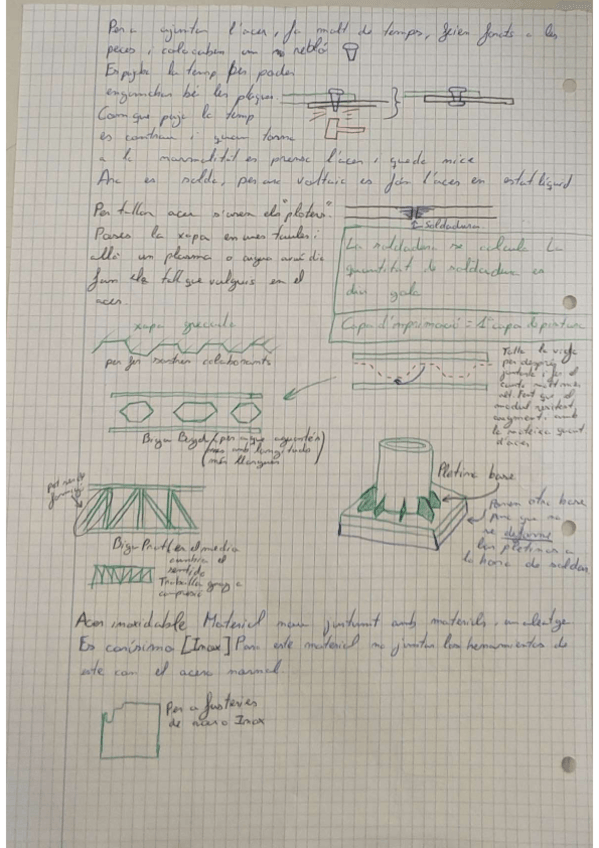 Per a ajuntar l'acer, fa molt de temps, feien forats a les
peces i colocaben un rebló
la temp per poder
enganchar bé les plaques.
Com que puja la temp
es contrau i quan torna
a la normalitat es prensa l'acer i queda
Ara es solda, per arc voltaic es fon l'acer en estat líquid
Per tallar acer s'usen els "ploters".
Poses la xapa en unes taules i
allí un plasma o aigua
fan els tall que vulgues en el
acer.
Soldadura
La soldadura se calcula. La
quantitat de soldadura es
diu gola
Capa d'imprimació = 1ª capa de pintura
xapa grecada
per fer sostres colaborants
Talla la viga
per després
juntarla i fer el
cantó molt més
alt. Fent que el
modul resistent
augmenti amb
la mateixa quant.
d'acer
Biga Boyd (per a que aguanten
mes amb longitud
més llargues)
Platina base
Posen otra base
para que no
se deforme
las platinas a
la hora de soldar
Biga Pratt en el medio
cambia el
sentido
Trabaja a
compresió
Acer inoxidable Material nou justament amb materials, un aleatge
Es caríssimo [Inox] Para este material no juntar las herramientas de
este con el acero normal.
Per a fusteries
de acero Inox